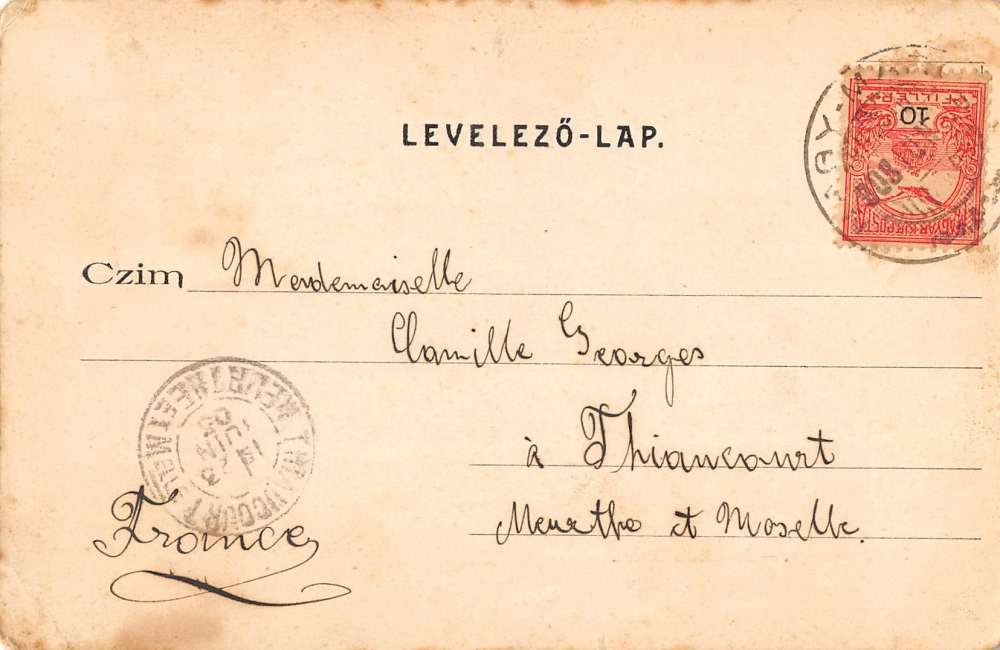 LEVELEZŐ-LAP.
10
FILLÉR
MAGYAR KIR. POSTA
Czim Mademoiselle
Camille Georges
à Thiaucourt
Meurthe et Moselle.
France
THIAUCOURT
MEURTHE ET MELLE